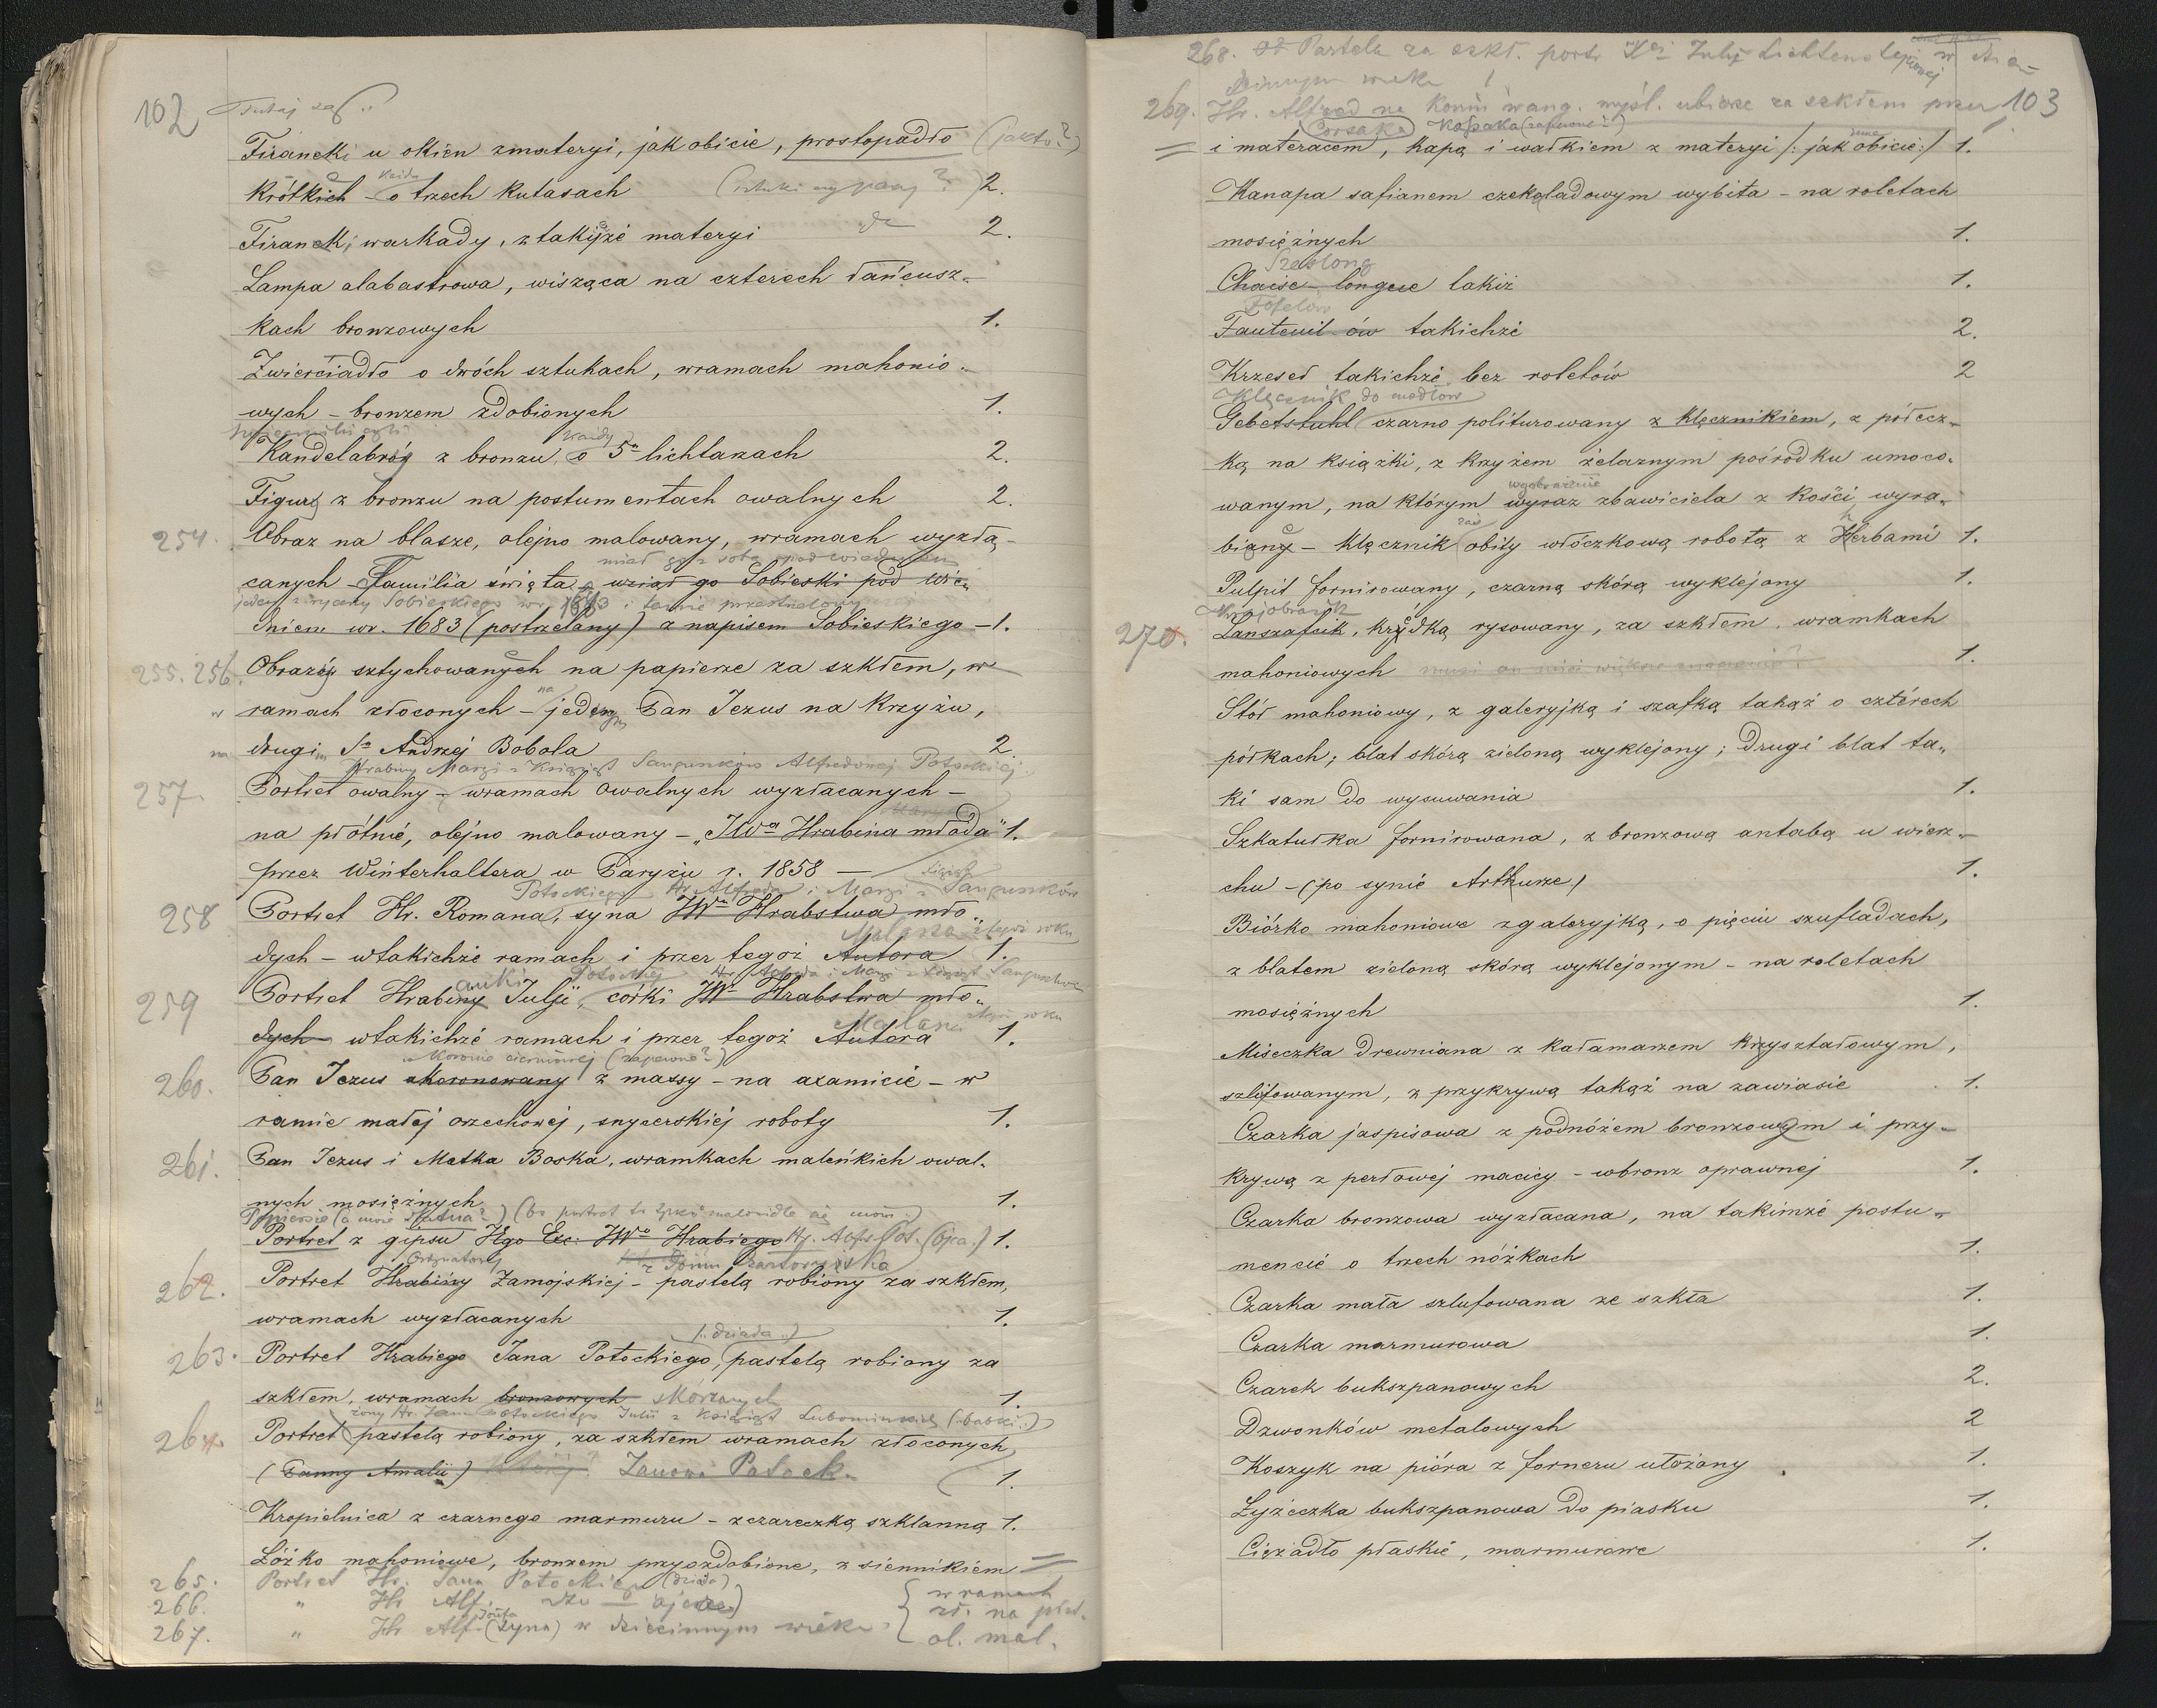 102
Firanecki u okien zmateryi, jak obicie, prostopadło
krótkich - o trzech kutasach 2.
Firanek, warkady, z takiejże materyi 2.
Lampa alabastrowa, wisząca na czterech łańcusz-
kach bronzowych 1.
Zwierciadło o dwóch sztukach, wramach mahonio-
wych - bronzem zdobionych 1.
każdy
Kandelabrów z bronzu, o 5u lichtarzach 2.
Figury z bronzu na postumentach owalnych 2.
254. Obraz na blasze, olejno malowany, wramach wyzła-
canych - Familia święta - wziął go Sobieski pod Wie-
dniem wr. 1683 (postrzelany) z napisem Sobieskiego - 1.
255. 256. Obrazów sztychowanych na papierze za szkłem, w
ramach złoconych - jeden Pan Jezus na Krzyżu,
drugi Sn Andrzej Bobola 2.
Hrabiny Maryi z Książąt Sanguszków Alfredowej Potockiej
257. Portret owalny - wramach owalnych wyzłacanych -
na płótnie, olejno malowany - „JWa Hrabina młoda" 1.
przez Winterhaltera w Paryżu r. 1858 -
Potockiego Hr. Alfreda i Maryi z Sanguszków
258 Portret Hr. Romana, syna JWa Hrabstwa mło-
Malarza z tegoż roku
dych - wtakichże ramach i przez tegoż Autora 1.
259 Portret Hrabiny Julji, córki JW Hrabstwa mło-
Malarza
dych - wtakichże ramach i przez tegoż Autora 1.
w koronie cierniowej (zapewne?)
260. Pan Jezus ukoronowany z massy - na axamicie - w
ramie małej orzechowej, snycerskiej roboty 1.
261. Pan Jezus i Matka Boska, wramkach maleńkich owal-
nych mosiężnych 1.
Portret z gipsu Jgo Exc: JWo Hrabiego 1.
Ordynatowej z Domu Czartoryska
262. Portret Hrabiny Zamojskiej - pastelą robiony za szkłem,
wramach wyzłacanych 1.
(:dziada:)
263. Portret Hrabiego Jana Potockiego, pastelą robiony za
szkłem, wramach bronzowych skórzanych 1.
żony Hr. Jana Potockiego Julii z Książąt Lubomirskich (:babki:)
264. Portret pastelą robiony, za szkłem wramach złoconych
(Panny Amalii) 1.
Kropielnica z czarnego marmuru - z czareczką szklanną 1.
Łóżko mahoniowe, bronzem przyozdobione, z siennikiem =
265. Portret Hr. Jana Potockiego (dziada)
266. " Hr Alf.
267. " Hr Alf. (syna) w dziecinnym wieku
w ramach
zł. na płót.
ol. mal.
268. Pastela za szkł. portr Julji Lichtensteinowej w dzie-
cinnym wieku
269. Hr. Alfred na koniu wang. myśl. ubiorze za szkłem przez 103
Corsaka Kossaka (zapewne?)
= i materacem, kapą i wałkiem z materyi /: jak obicie:/ 1.
Kanapa safianem czekoladowym wybita - na roletach
mosiężnych 1.
Szeslong
Chaise-longue takiż 1.
Fotelów
Fauteuil-ów takichże 2.
Krzeseł takichże bez roletów 2
Klęcznik do modłów
Gebetstuhl czarno politurowany z klęcznikiem, z półecz-
ką na książki, z krzyżem żelaznym pośrodku umoco-
wyobrażenie
wanym, na którym wyraz zbawiciela z kości wyra-
zaś
biony - klęcznik obity włóczkową robotą z Herbami 1.
Pulpit fornirowany, czarną skórą wyklejony 1.
Krajobrazik
270. Lanszafcik, krydką rysowany, za szkłem, wramkach
mahoniowych 1.
Stół mahoniowy, z galeryjką i szafką takąż o cztérech
półkach; blat skórą zieloną wyklejony; drugi blat ta-
ki sam do wysuwania 1.
Szkatułka fornirowana, z bronzową antabą u wierz-
chu - (po synie Arthurze) 1.
Biórko mahoniowe zgaleryjką, o pięciu szufladach,
z blatem zieloną skórą wyklejonym - na roletach
mosiężnych 1.
Miseczka drewniana z kałamarzem kryształowym,
szlifowanym, z przykrywą takąż na zawiasie 1.
Czarka jaspisowa z podnóżem bronzowym i przy-
krywą z perłowej macicy - wbronz oprawnej 1.
Czarka bronzowa wyzłacana, na takimże postu-
mencie o trzech nóżkach 1.
Czarka mała szlufowana ze szkła 1.
Czarka marmurowa 1.
Czarek bukszpanowych 2.
Dzwonków metalowych 2
Koszyk na pióra z forneru ułożony 1.
Łyżeczka bukszpanowa do piasku 1.
Ciężadło płaskie, marmurowe 1.